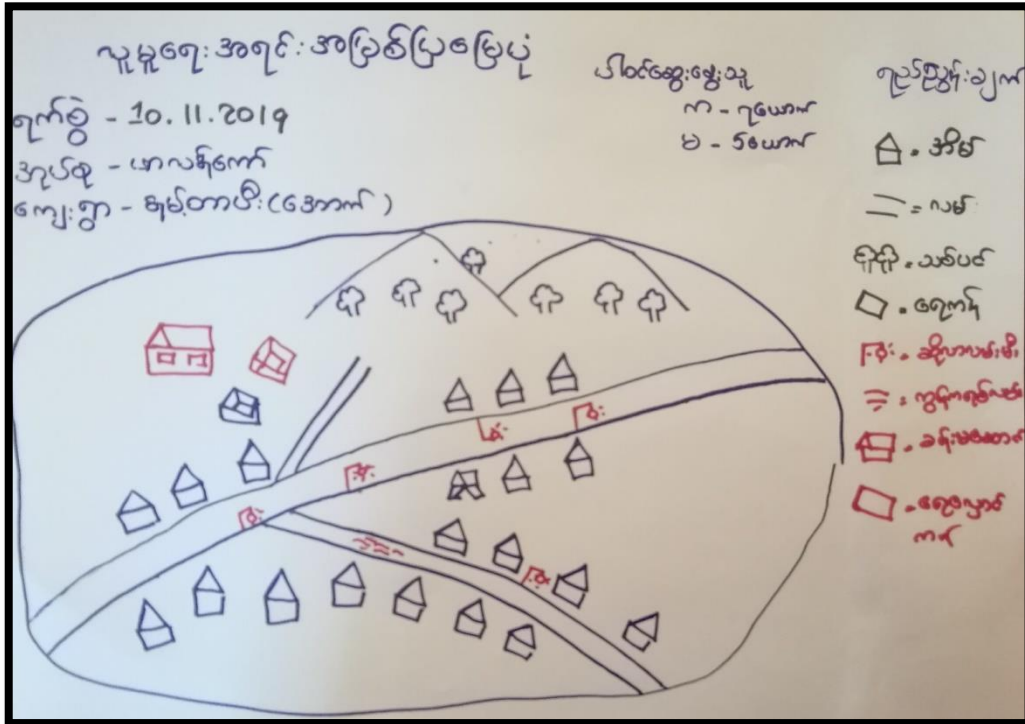 လူမူရေးအရင်းအမြစ်ပြမြေပုံ
ရက်စွဲ - 10.11.2019
အုပ်စု - ဟာလန်ကော်
ကျေးရွာ - (အောက်)
ပါဝင်ဆွေးနွေးသူ
က - ၇ယောက်
မ - ၆ယောက်
ရည်ညွှန်းချက်
= အိမ်
= လမ်း
= သစ်ပင်
= ရေကန်
= ဆိုလာလမ်းမီး
= ကွန်ကရစ်လမ်း
= ခန်းမဆောင်
= ရေလှောင်
ကန်